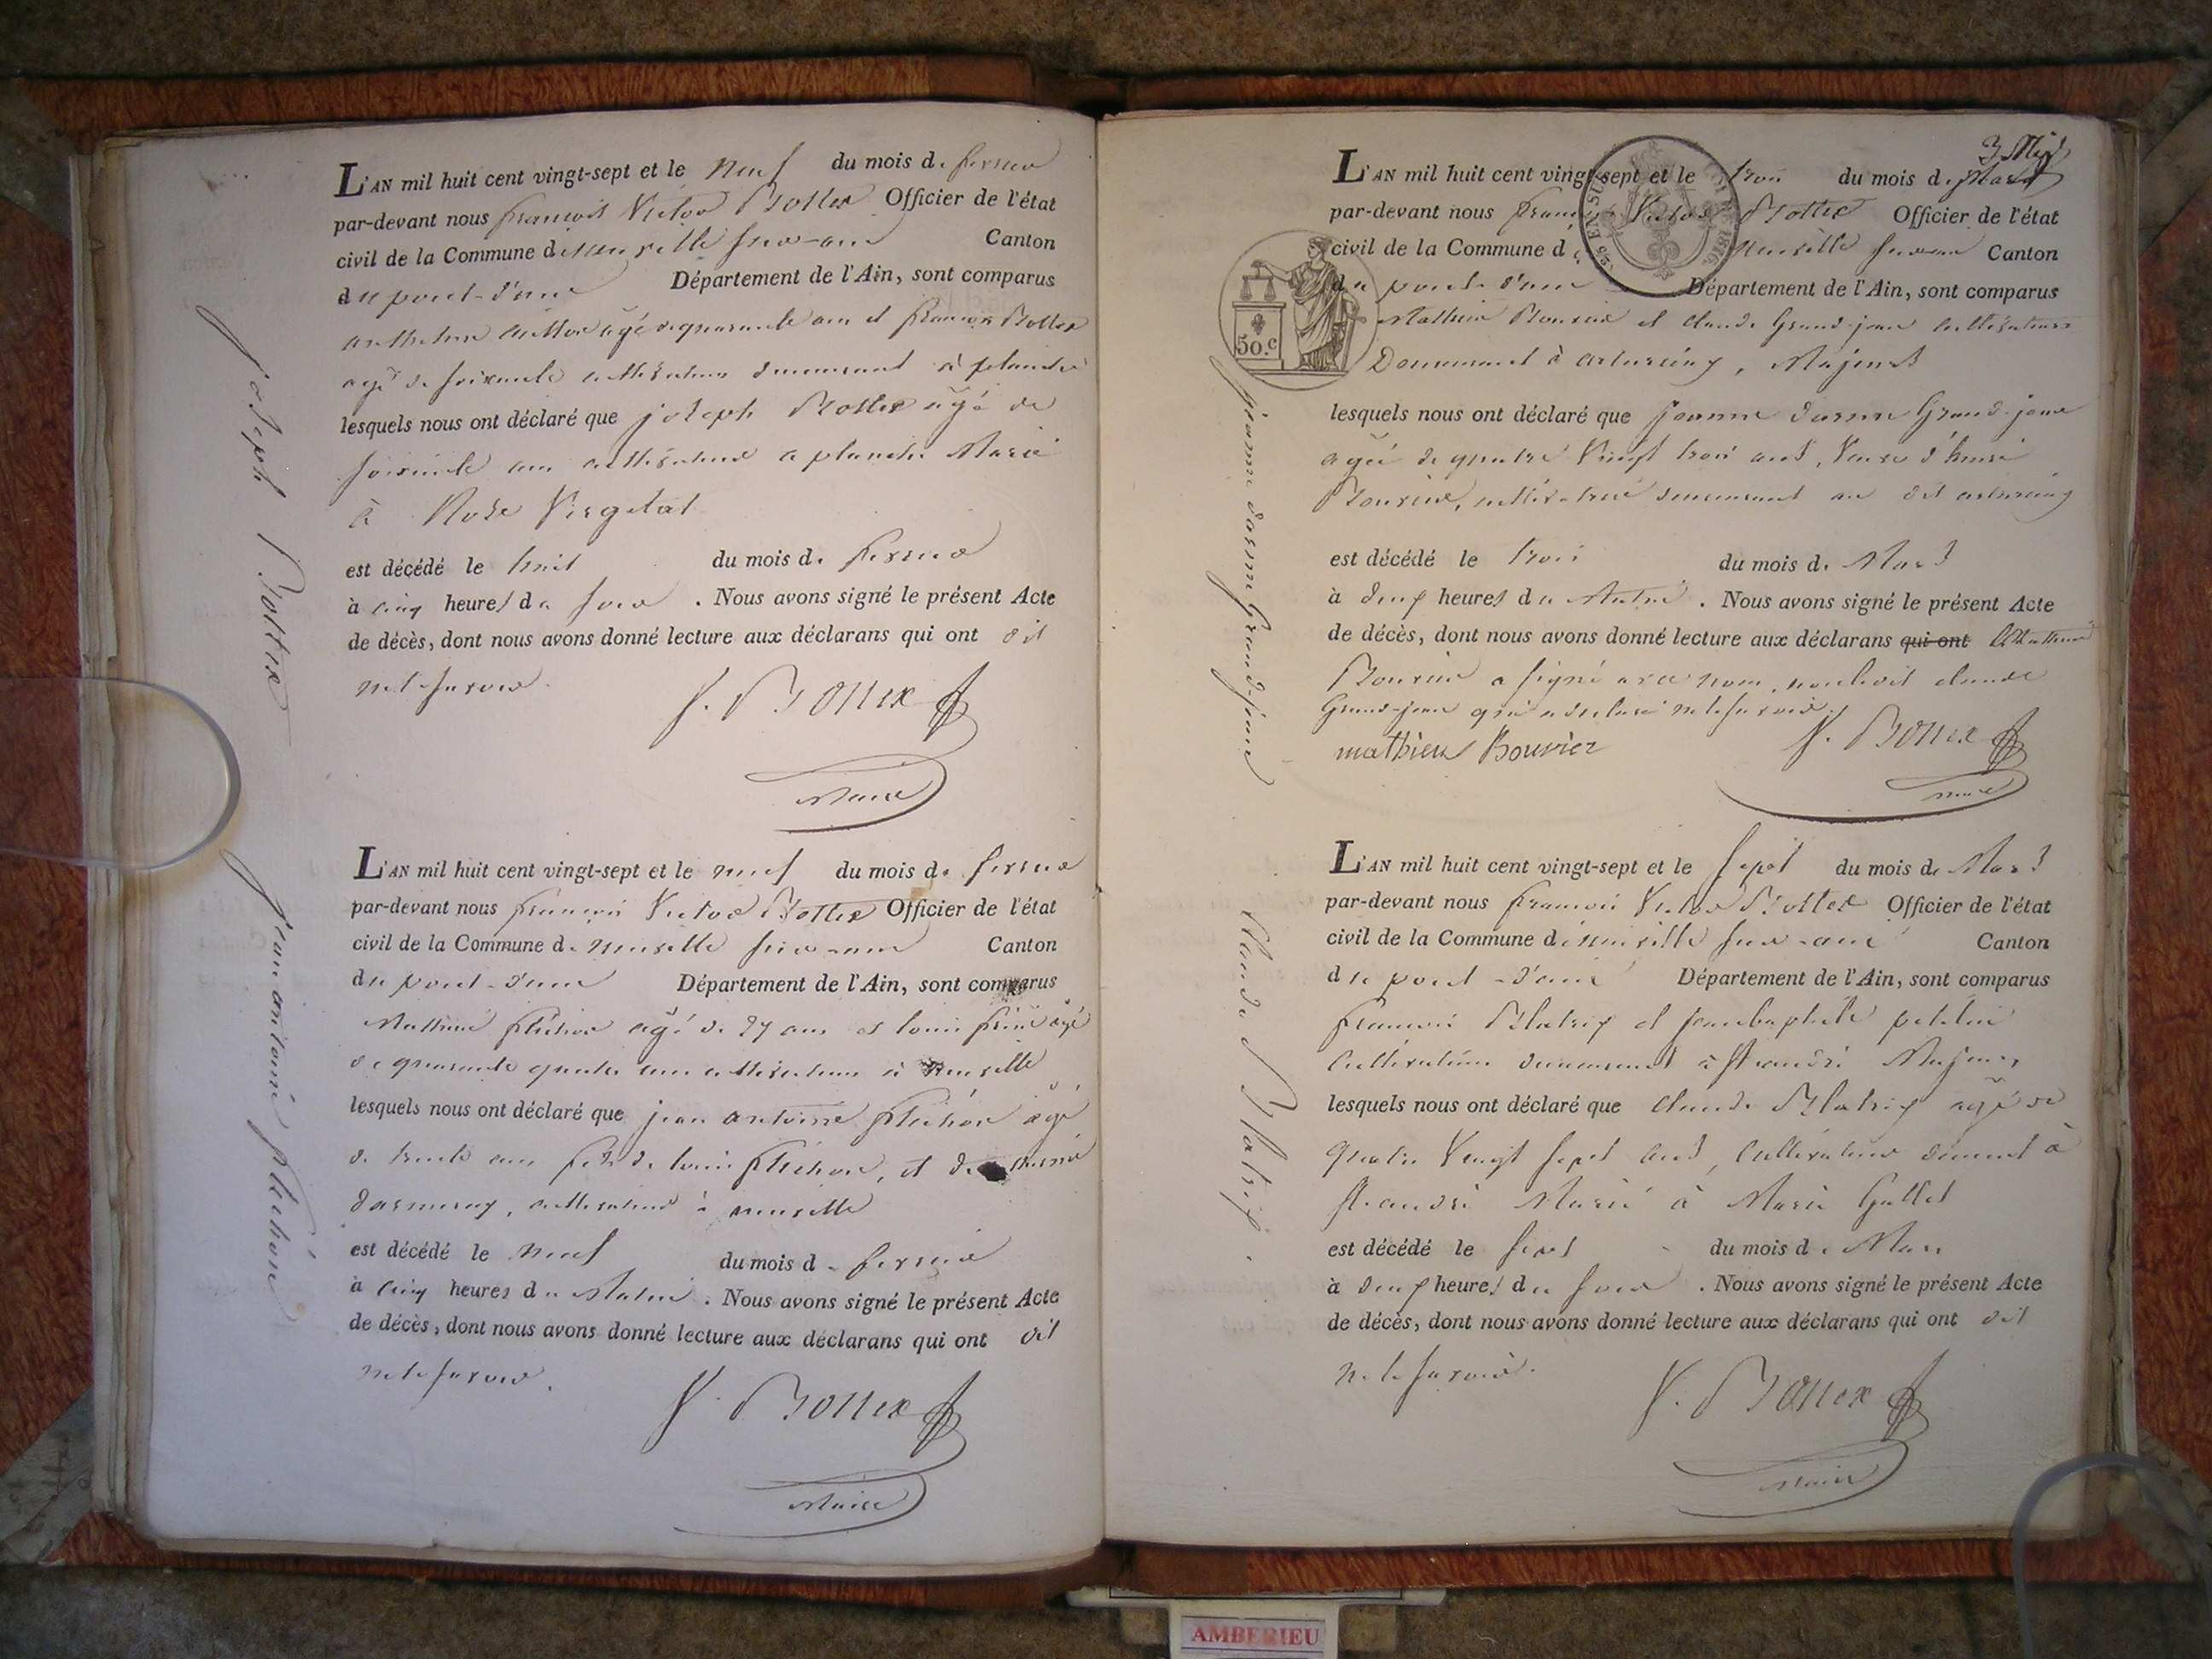 L'AN mil huit cent vingt-sept et le neuf du mois de fevrier
par-devant nous françois Victor Bottex Officier de l'état
civil de la Commune de neuville sur-ain Canton
du pont-d'ain Département de l'Ain, sont comparus
âgé de quarante ans et françois Bottex
agé de soixante cultivateurs demeurant à planche
lesquels nous ont déclaré que joseph Bottex agé de
soixante ans cultivateur a planche Marié
à Rose Vergelat
est décédé le huit du mois de fevrier
à cinq heures du soir . Nous avons signé le présent Acte
de décès, dont nous avons donné lecture aux déclarans qui ont dit
ne le savoir.
V. Bottex
Maire
joseph Bottex
L'AN mil huit cent vingt-sept et le neuf du mois de fevrier
par-devant nous françois Victor Bottex Officier de l'état
civil de la Commune de neuville sur-ain Canton
du pont-d'ain Département de l'Ain, sont comparus
Mathieu âgé de 27 ans et louis agé
de quarante quatre ans cultivateurs à neuville
lesquels nous ont déclaré que jean antoine agé
de trente ans fils de louis , et de
cultivateur à neuville
est décédé le neuf du mois de fevrier
à cinq heures du Matin . Nous avons signé le présent Acte
de décès, dont nous avons donné lecture aux déclarans qui ont dit
ne le savoir.
V. Bottex
Maire
jean antoine
3 Mars
L'AN mil huit cent vingt-sept et le trois du mois de Mars
par-devant nous françois Victor Bottex Officier de l'état
civil de la Commune de neuville sur-ain Canton
du pont-d'ain Département de l'Ain, sont comparus
50.c
Mathieu Bouvier et claude Grand-jean cultivateurs
Demeurant à , Majeurs
lesquels nous ont déclaré que jeanne Grand-jean
agée de quatre Vingt trois ans, Veuve d'
Bouvier, cultivatrice demeurant au dit
est décédé le trois du mois de Mars
à deux heures du Matin . Nous avons signé le présent Acte
de décès, dont nous avons donné lecture aux déclarans qui ont Mathieu
Bouvier a signé avec nous, non ledit claude
Grand-jean qui a déclaré ne le savoir.
mathieu Bouvier V. Bottex
maire
jeanne Grand-jean
L'AN mil huit cent vingt-sept et le sept du mois de Mars
par-devant nous françois Victor Bottex Officier de l'état
civil de la Commune de neuville sur-ain Canton
du pont-d'ain Département de l'Ain, sont comparus
françois Blatrix et jean baptiste
cultivateurs demeurant à St andré Majeurs
lesquels nous ont déclaré que claude Blatrix agé de
quatre Vingt sept ans, cultivateur demeurant à
St. andré Marié à Marie Gallet
est décédé le sept du mois de Mars
à deux heures du soir . Nous avons signé le présent Acte
de décès, dont nous avons donné lecture aux déclarans qui ont dit
ne le savoir.
V. Bottex
Maire
Claude Blatrix.
AMBERIEU